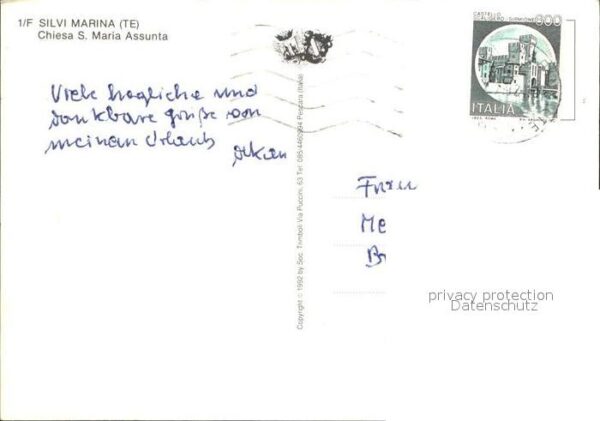 1/F SILVI MARINA (TE)
Chiesa S. Maria Assunta
Viele herzliche und
dankbare Grüße von
meinem Urlaub
CASTELLO
SCALIGERO - SIRMIONE
ITALIA
Frau
Me
B
privacy protection
Datenschutz
Copyright © 1992 by Soc. Trimboli Via Puccini, 63 Tel. 085/4460994 Pescara (Italia)